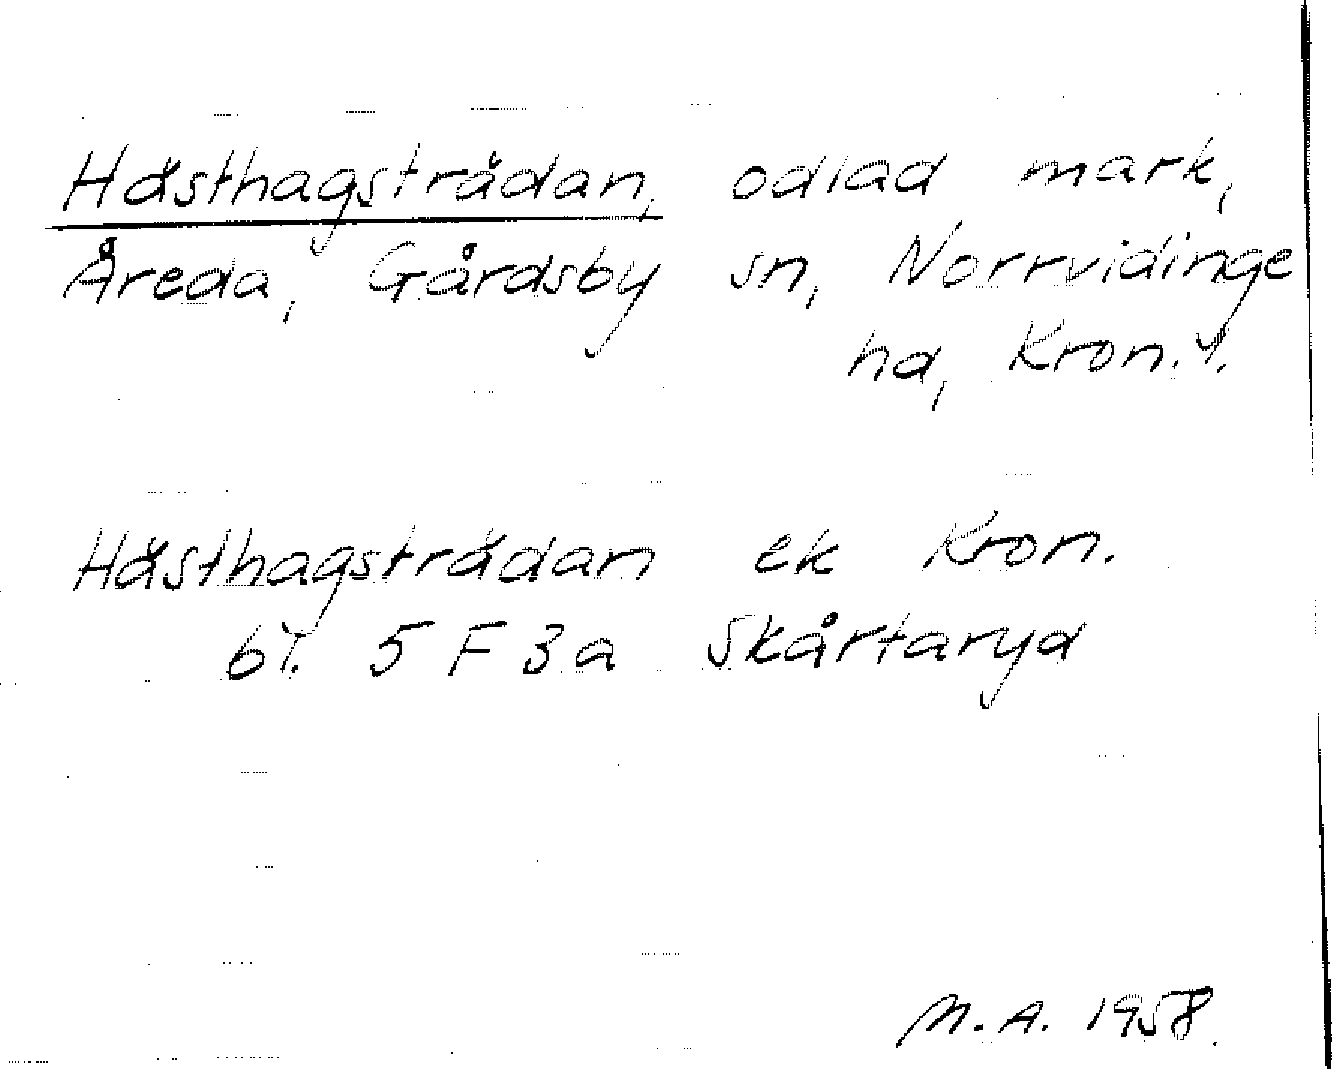 Hästhagsträdan, odlad mark,
Åreda, Gårdsby sn, Norrvidinge
hd, Kron. l.
Hästhagsträdan ek Kron.
bl. 5 F 3 a Skårtaryd
M. A. 1958.